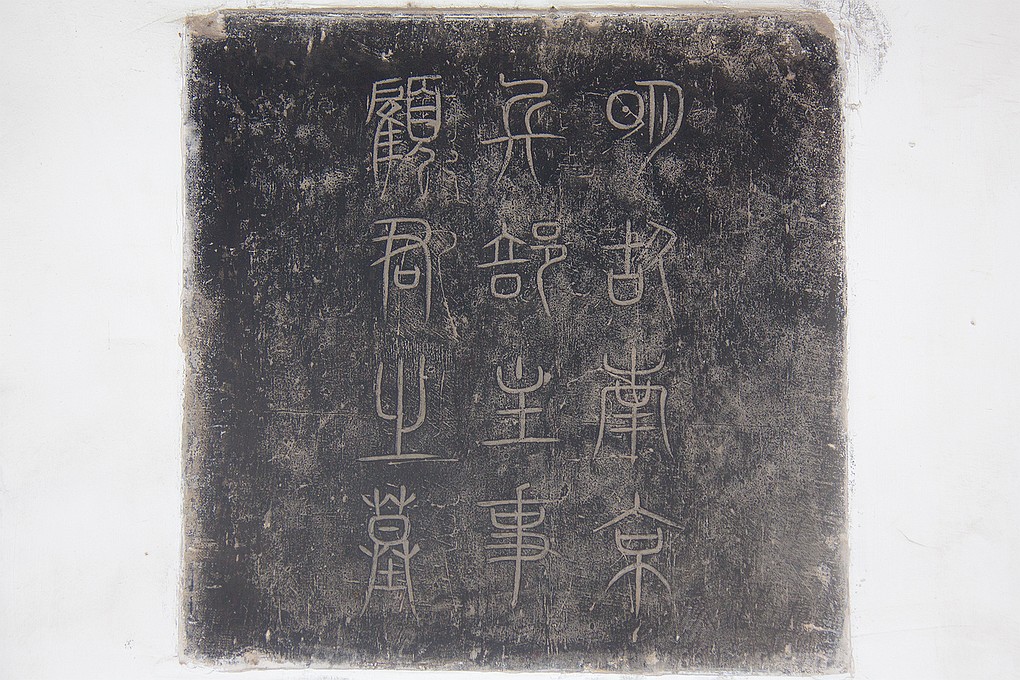 明故南京
兵部主事
顧君之墓